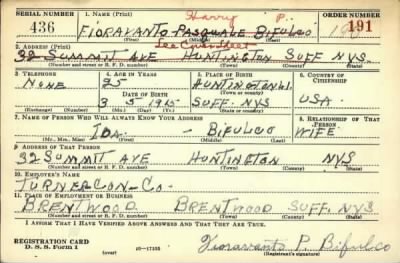 SERIAL NUMBER 1. NAME (Print) ORDER NUMBER
Harry P.
436 FIORAVANTO PASQUALE BIFULCO 191
(First) (Middle) (Last)
See Cover Sheet
2. ADDRESS (Print)
32 SUMMIT AVE HUNTINGTON SUFF NYS
(Number and street or R. F. D. number) (Town) (County) (State)
3. TELEPHONE 4. AGE IN YEARS 5. PLACE OF BIRTH 6. COUNTRY OF CITIZENSHIP
NONE 25 HUNTINGTON L.I.
DATE OF BIRTH (Town or county)
3 5 1915 SUFF. NYS USA.
(Exchange) (Number) (Mo.) (Day) (Yr.) (State or country)
7. NAME OF PERSON WHO WILL ALWAYS KNOW YOUR ADDRESS 8. RELATIONSHIP OF THAT PERSON
IDA - BIFULCO WIFE
(Mr., Mrs., Miss) (First) (Middle) (Last)
9. ADDRESS OF THAT PERSON
32 SUMMIT AVE HUNTINGTON NYS
(Number and street or R. F. D. number) (Town) (County) (State)
10. EMPLOYER'S NAME
TURNER CON-CO-
11. PLACE OF EMPLOYMENT OR BUSINESS
BRENTWOOD BRENTWOOD SUFF. NYS
(Number and street or R. F. D. number) (Town) (County) (State)
I AFFIRM THAT I HAVE VERIFIED ABOVE ANSWERS AND THAT THEY ARE TRUE.
REGISTRATION CARD
D. S. S. Form 1 (over) Fioravanto P. Bifulco
(Registrant's signature)